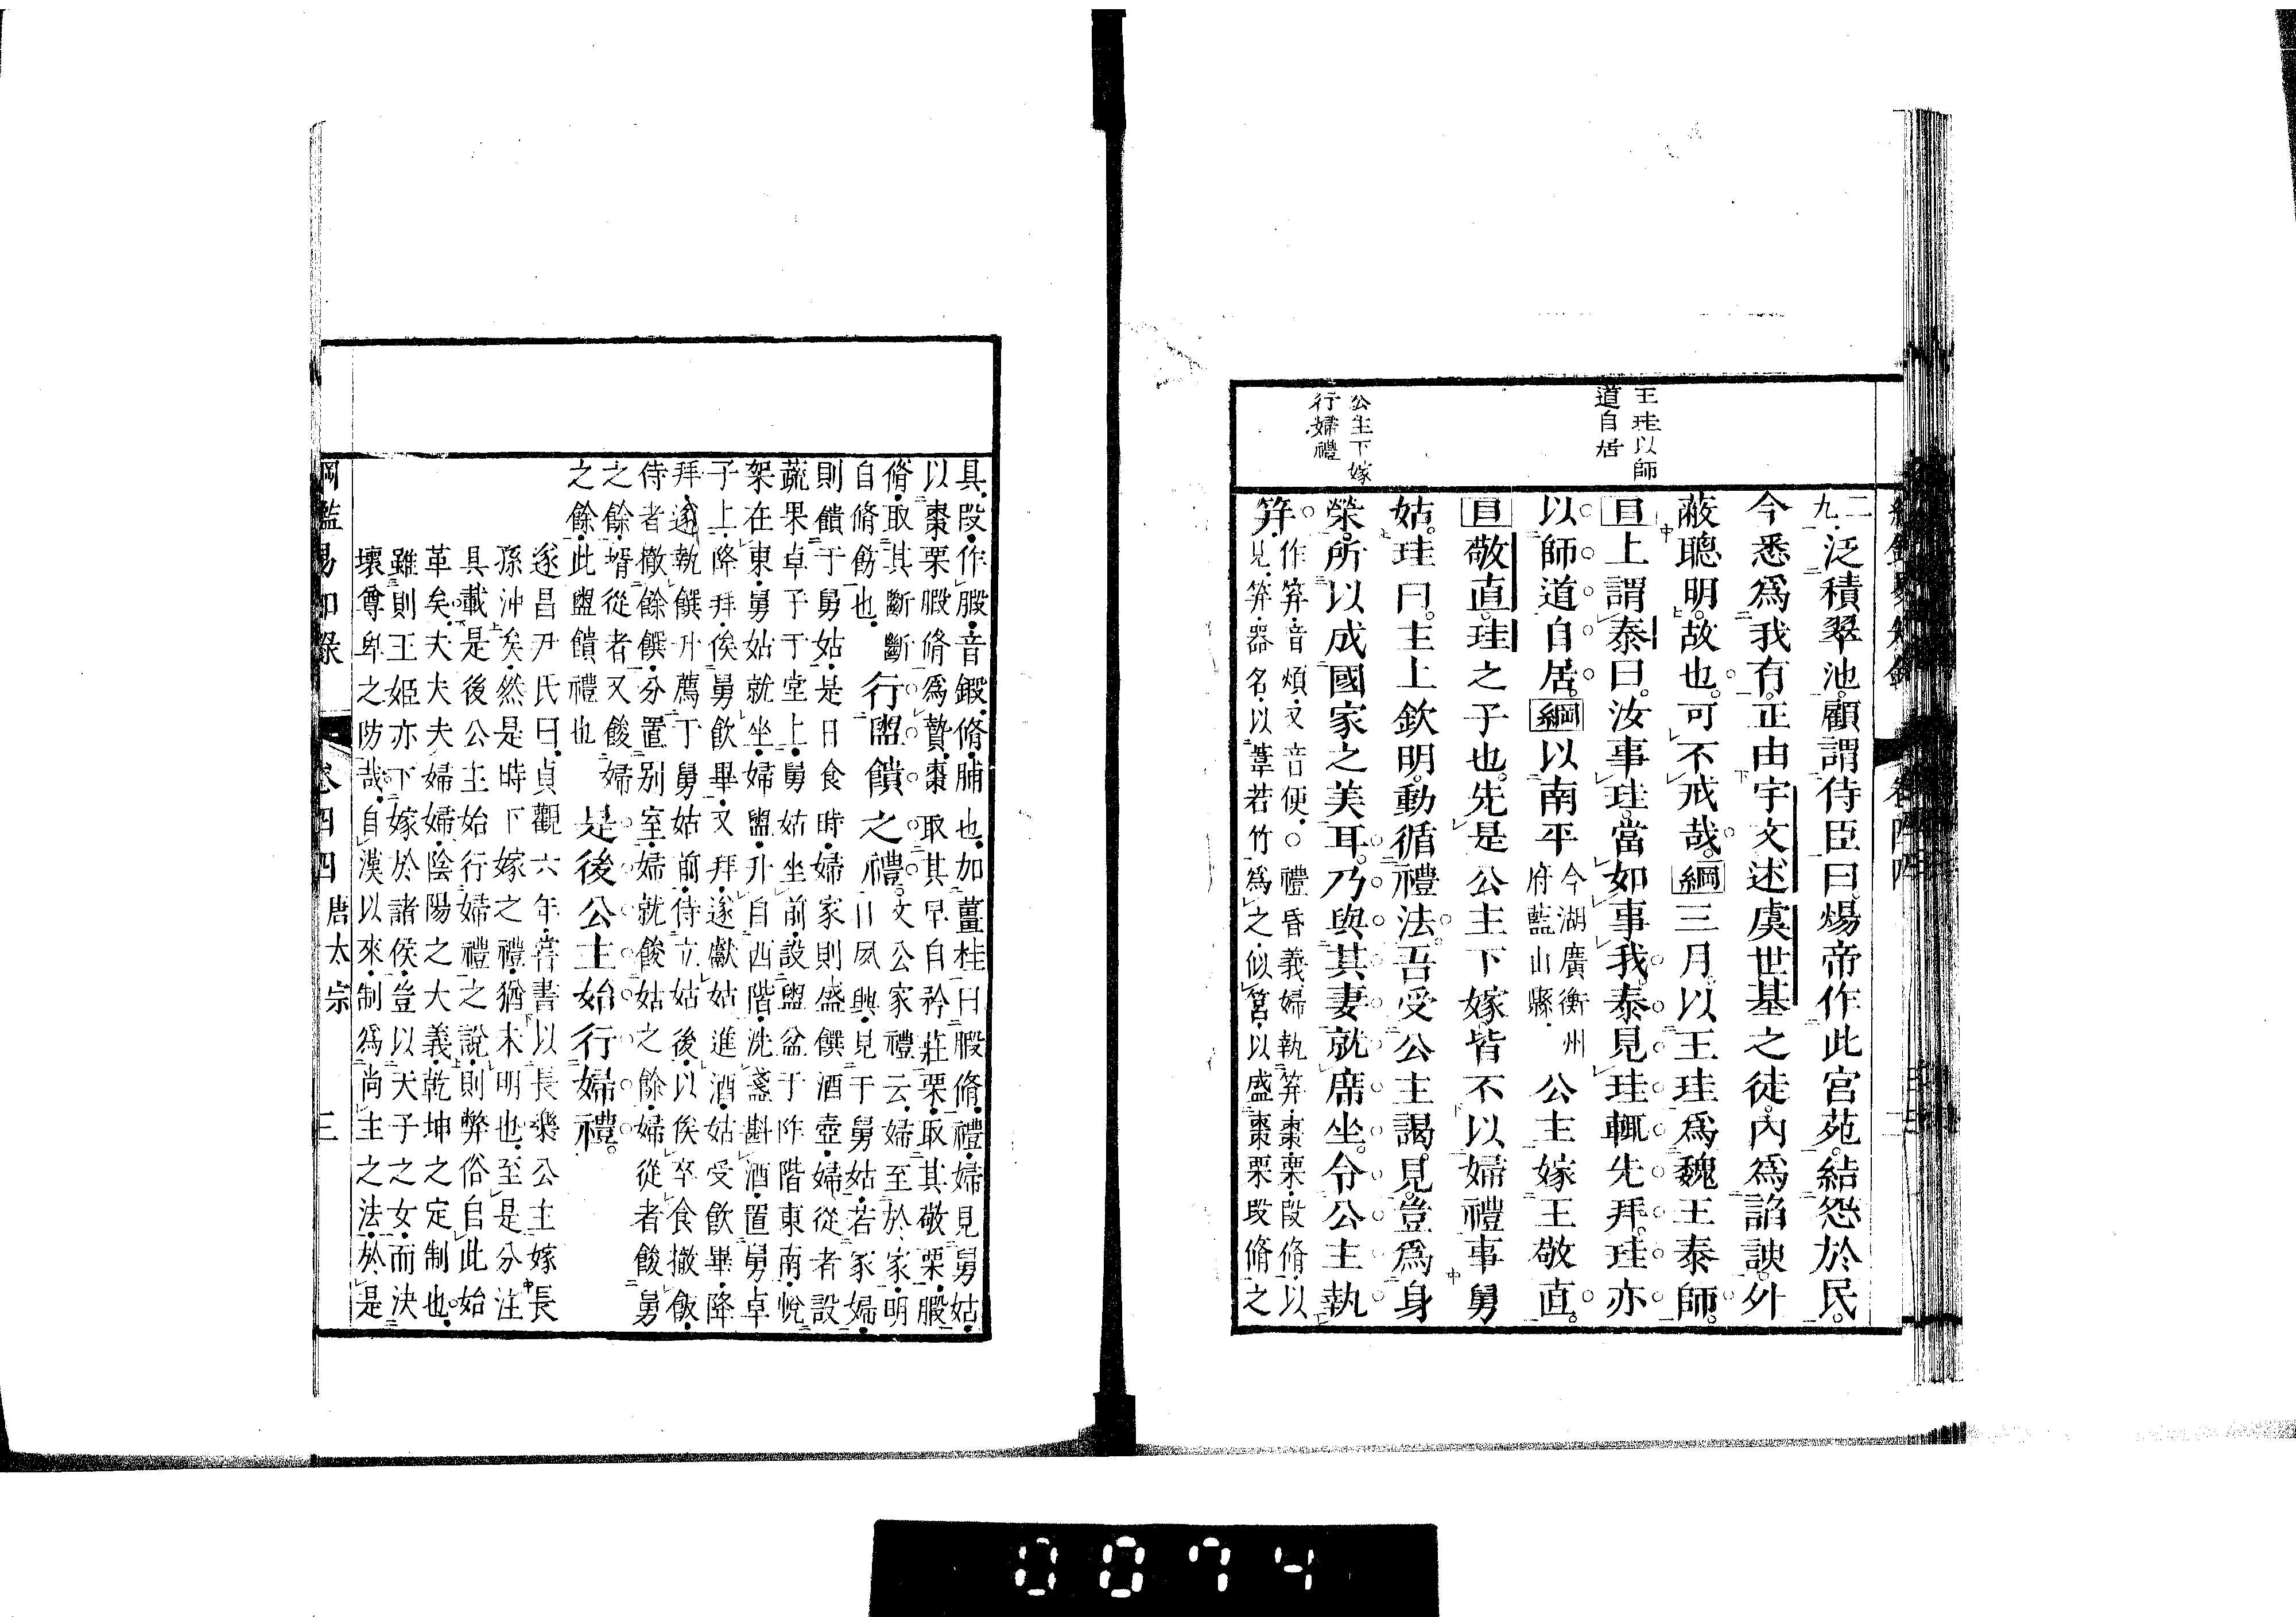 王珪以師
道自居
公主下嫁
行婦禮
二九泛積翠池。顧謂侍臣曰。煬帝作此宮苑。結怨於民。
今悉爲我有。正由宇文述虞世基之徒。內爲諂諛。外
蔽聰明。故也。可不戒哉。綱三月。以王珪爲魏王泰師。
目上謂泰曰。汝事珪。當如事我。泰見珪輒先拜。珪亦
以師道自居。綱以南平今湖廣衡州府藍山縣公主嫁王敬直。
目敬直。珪之子也。先是公主下嫁。皆不以婦禮事舅
姑。珪曰。主上欽明。動循禮法。吾受公主謁見。豈爲身
榮。所以成國家之美耳。乃與其妻就席坐。令公主執
笲。作笲音煩又音便○禮昏義婦執笲棗栗段脩以
見笲器名以葦若竹爲之似筥以盛棗栗段脩之
具段作腶音鍛脩脯也加薑桂曰腶脩禮婦見舅姑
以棗栗腶脩爲贄棗取其早自矜莊栗取其敬栗腶
脩取其斷斷自脩飭也行盥饋之禮。文公家禮云婦至於家明日夙興見于舅姑若冢婦
則饋于舅姑是日食時婦家則盛饌酒壺婦從者設
蔬果卓子于堂上舅姑坐前設盥盆于阼階東南帨
架在東舅姑就坐婦盥升自西階洗盞斟酒置舅卓
子上降拜俟舅飲畢又拜遂獻姑進酒姑受飲畢降
拜遂執饌升薦于舅姑前侍立姑後以俟卒食撤飯
侍者撤餘饌分置別室婦就餕姑之餘婦從者餕舅
之餘壻從者又餕婦之餘此盥饋禮也是後公主始行婦禮。
遂昌尹氏曰貞觀六年嘗書以長樂公主嫁長
孫沖矣然是時下嫁之禮猶未明也至是分注
具載是後公主始行婦禮之說則弊俗自此始
革矣夫夫夫婦婦陰陽之大義乾坤之定制也
雖則王姬亦下嫁於諸侯豈以天子之女而決
壞尊卑之防哉自漢以來制爲尚主之法於是
綱鑑易知錄 卷四四 唐太宗 三
0074